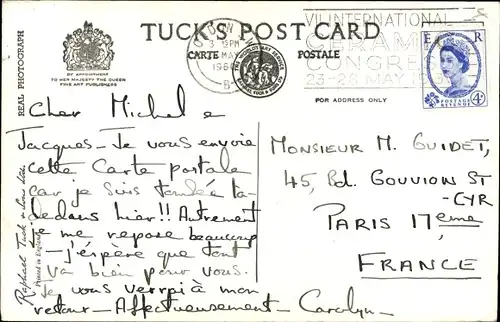 TUCK'S POST CARD
CARTE POSTALE
BY APPOINTMENT
TO HER MAJESTY THE QUEEN
FINE ART PUBLISHERS
REAL PHOTOGRAPH
Raphael Tuck & Sons Ltd.
Printed in England
3 15PM
MAY
196
VII INTERNATIONAL
CERAMIC
CONGRESS
23-28 MAY
E R
POSTAGE
REVENUE
4D
FOR ADDRESS ONLY
Cher Michel e
Jacques - Je vous envoie
cette Carte postale
car je suis tombée la-
dedans hier!! Autrement
je me repose beaucoup
- j'éspère que tout
va bien pour vous.
Je vous verrai à mon
retour - Affectueusement - Carolyn -
MONSIEUR M. GUIDET,
45, Bd. GOUVION ST
- CYR
PARIS 17eme
FRANCE